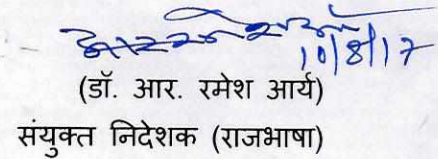 10/8/17
(डॉ. आर. रमेश आर्य)
संयुक्त निदेशक (राजभाषा)